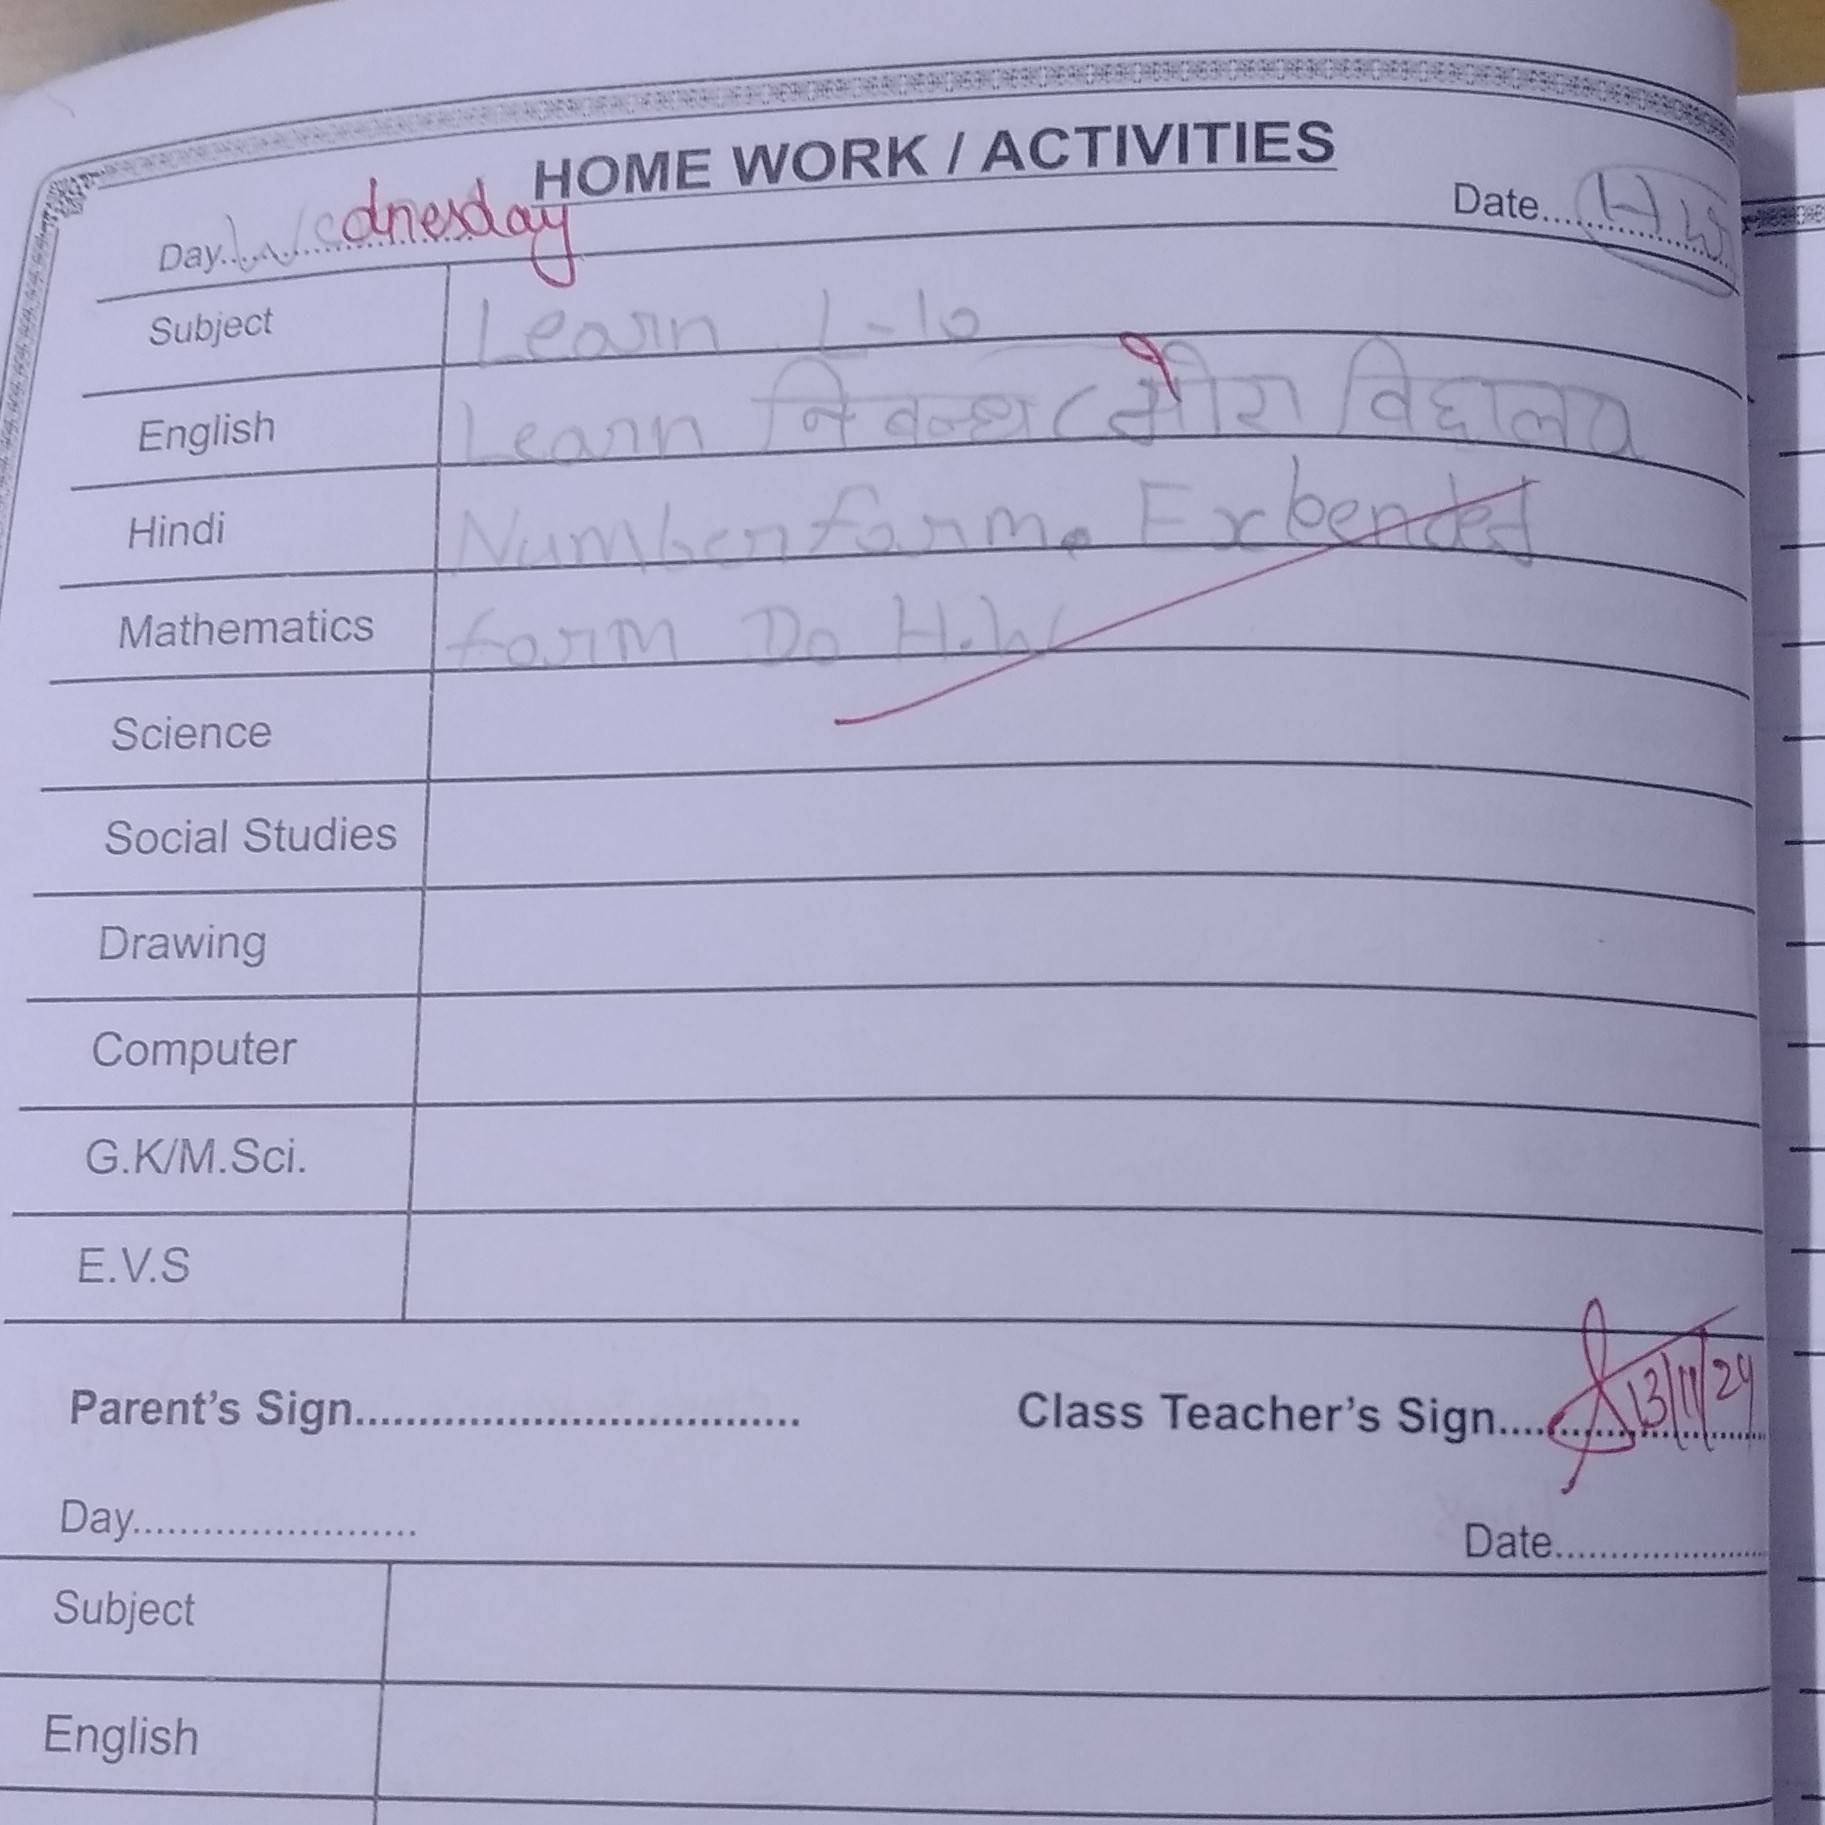 HOME WORK / ACTIVITIES
Day..Wednesday Date....HW
Subject Learn L-10
English Learn निबन्ध (मेरा विद्दालय
Hindi Number form. Exbended
Mathematics form Do H.W
Science
Social Studies
Drawing
Computer
G.K/M.Sci.
E.V.S
Parent's Sign.................................. Class Teacher's Sign.... 13/11/24
Day........................ Date......................
Subject
English